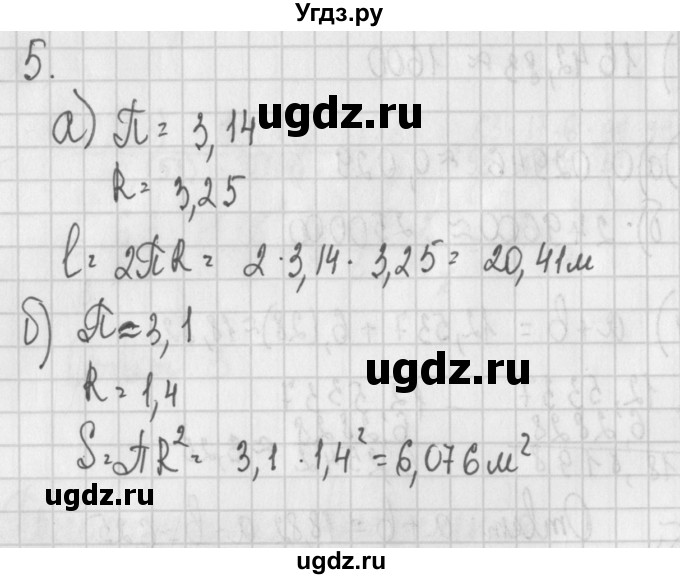 Угдз.ру
5.
а) П = 3,14
ugdz.ru
R = 3,25
l = 2ПR = 2 · 3,14 · 3,25 = 20,41 м
б) П ≈ 3,1
ugdz.ru
R = 1,4
S = ПR² = 3,1 · 1,4² = 6,076 м²
ugdz.ru
ugdz.ru